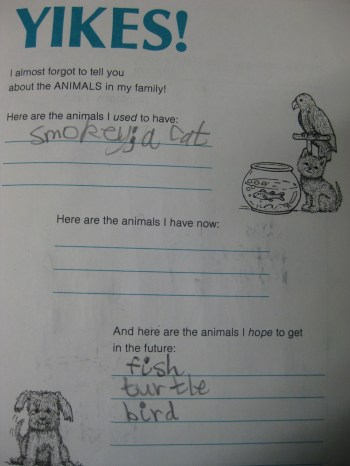 YIKES!
I almost forgot to tell you
about the ANIMALS in my family!
Here are the animals I used to have:
smokey; a cat
Here are the animals I have now:
And here are the animals I hope to get
in the future:
fish
turtle
bird